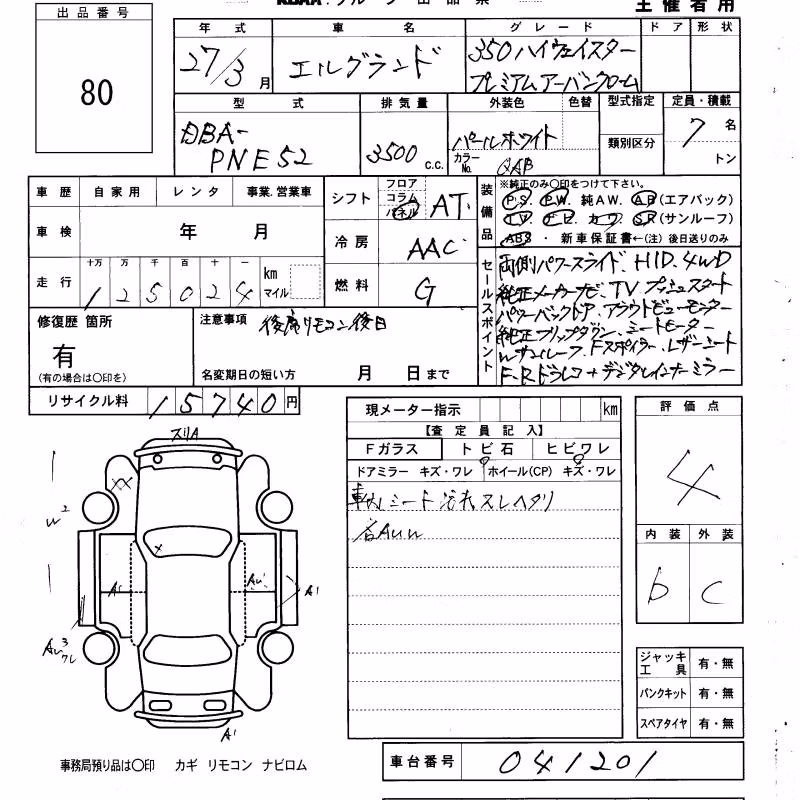 出品番号
80
主催者用
年式 車名 グレード ドア 形状
27/3月 エルグランド 350ハイウェイスター
プレミアムアーバンクローム
型式 排気量 外装色 色替 型式指定 定員・積載
DBA-
PNE52
3500 c.c.
パールホワイト
カラーNo. QAB
類別区分
7名
トン
車歴 自家用 レンタ 事業.営業車
車検 年 月
走行 十万 万 千 百 十 一
125024 km マイル
シフト フロア コラム パネル AT
冷房 AAC
燃料 G
装備品
※純正のみ〇印をつけて下さい。
P.S. P.W. 純AW. AB(エアバック)
T.V. ナビ カワ SR(サンルーフ)
ABS ・ 新車保証書←(注) 後日送りのみ
セールスポイント
両側パワースライド、HID、4WD
純正メーカーナビ、TV プッシュスタート
パワーバックドア、アラウンドビューモニター
純正フリップダウン、シートヒーター
Wサンルーフ、Fスポイラー、レザーシート
F・Rドラレコ+デジタルインナーミラー
修復歴 箇所
有
(有の場合は〇印を)
注意事項 後席リモコン後日
名変期日の短い方 月 日まで
リサイクル料 15740円
現メーター指示 km
【査定員記入】
Fガラス トビ石 ヒビワレ
ドアミラー キズ・ワレ ホイール(CP) キズ・ワレ
車内シート汚れスレヘタリ
各AUW
評価点
4
内装 外装
b C
スリA
XX
W2
X
A1
AU1
A1
AU3
ワレ
A1
ジャッキ工具 有・無
パンクキット 有・無
スペアタイヤ 有・無
事務局預り品は〇印 カギ リモコン ナビロム
車台番号 041201